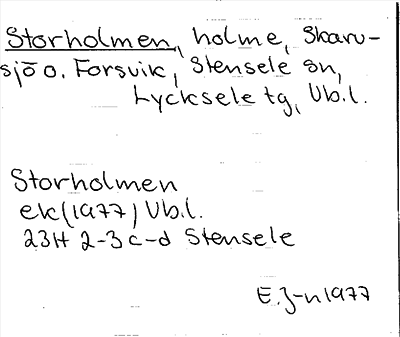 Storholmen, holme, Skarv-
sjö o. Forsvik, Stensele sn,
Lycksele tg, Vb.l.
Storholmen
ek(1977) Vb.l.
23H 2-3 c-d Stensele
E.J-n 1977